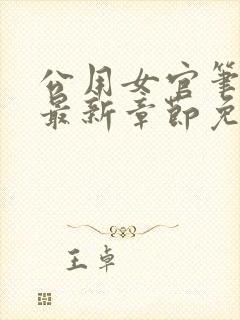 公用女官笔
最新章节免
王卓